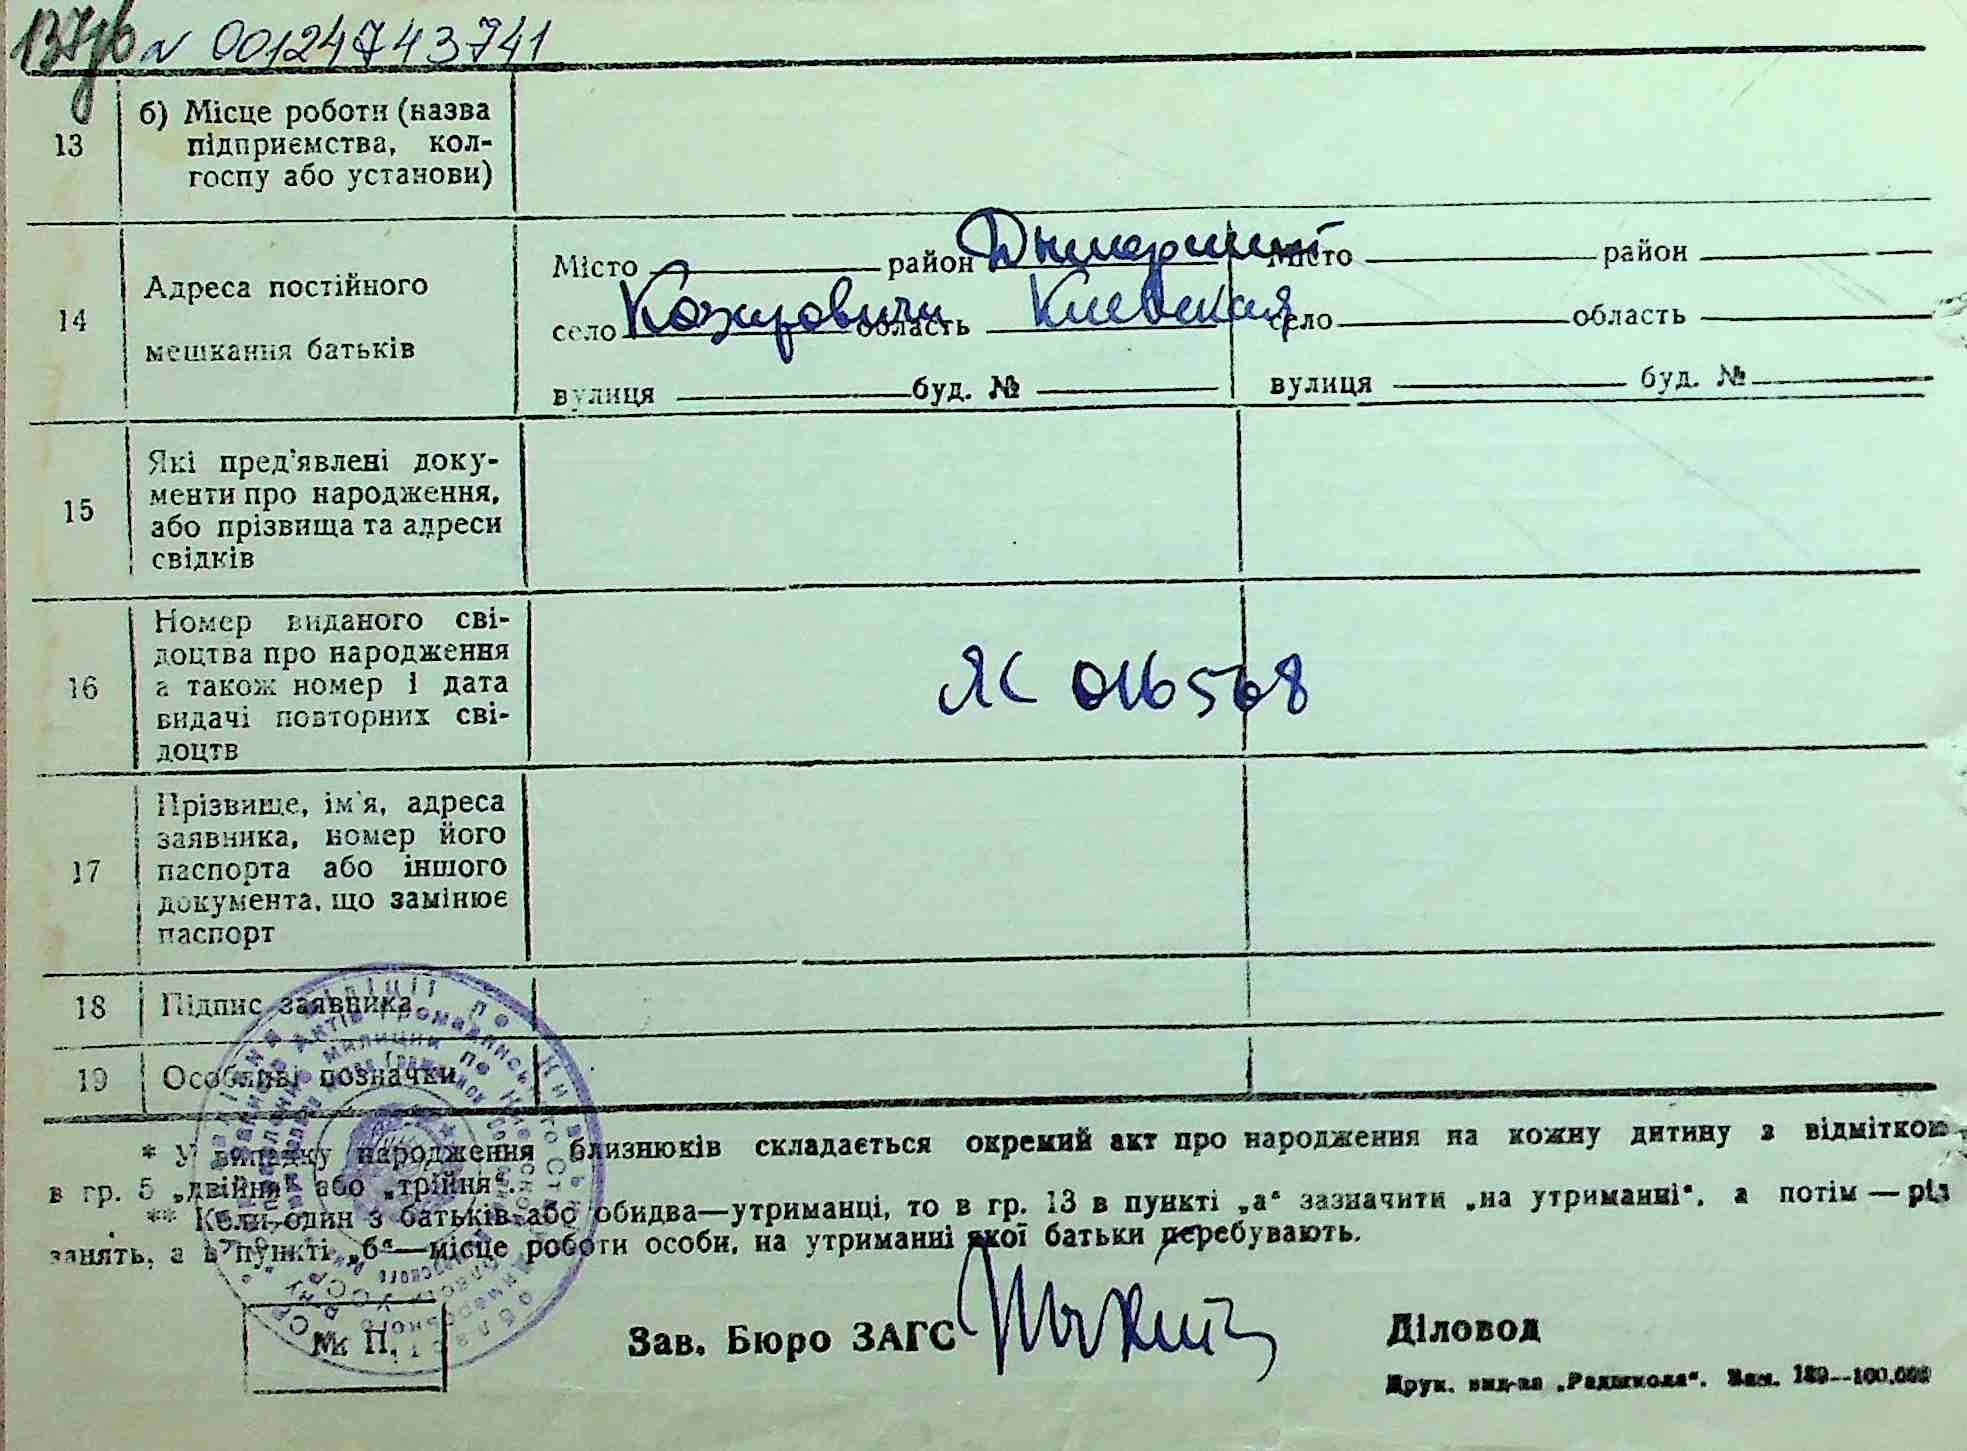 137зв N 00124743741
13
б) Місце роботи (назва
підприємства, кол-
госпу або установи)
14
Адреса постійного
мешкання батьків
Місто район Дымерский Місто район
село Козаровичи область Киевская село область
вулиця буд. № вулиця буд. №
15
Які пред'явлені доку-
менти про народження,
або прізвища та адреси
свідків
16
Номер виданого сві-
доцтва про народження
а також номер і дата
видачі повторних сві-
доцтв
ЯС 016568
17
Прізвище, ім'я, адреса
заявника, номер його
паспорта або іншого
документа, що замінює
паспорт
18 Підпис заявника
19 Особливі позначки
* У випадку народження близнюків складається окремий акт про народження на кожну дитину з відміткою
в гр. 5 „двійня“ або „трійня“.
** Коли один з батьків або обидва—утриманці, то в гр. 13 в пункті „а“ зазначити „на утриманні“, а потім — рід
занять, а в пункті „б“—місце роботи особи, на утриманні якої батьки перебувають.
М. П.
Зав. Бюро ЗАГС
Діловод
Друк. вид-ва „Радшкола“. Зам. 189—100.000